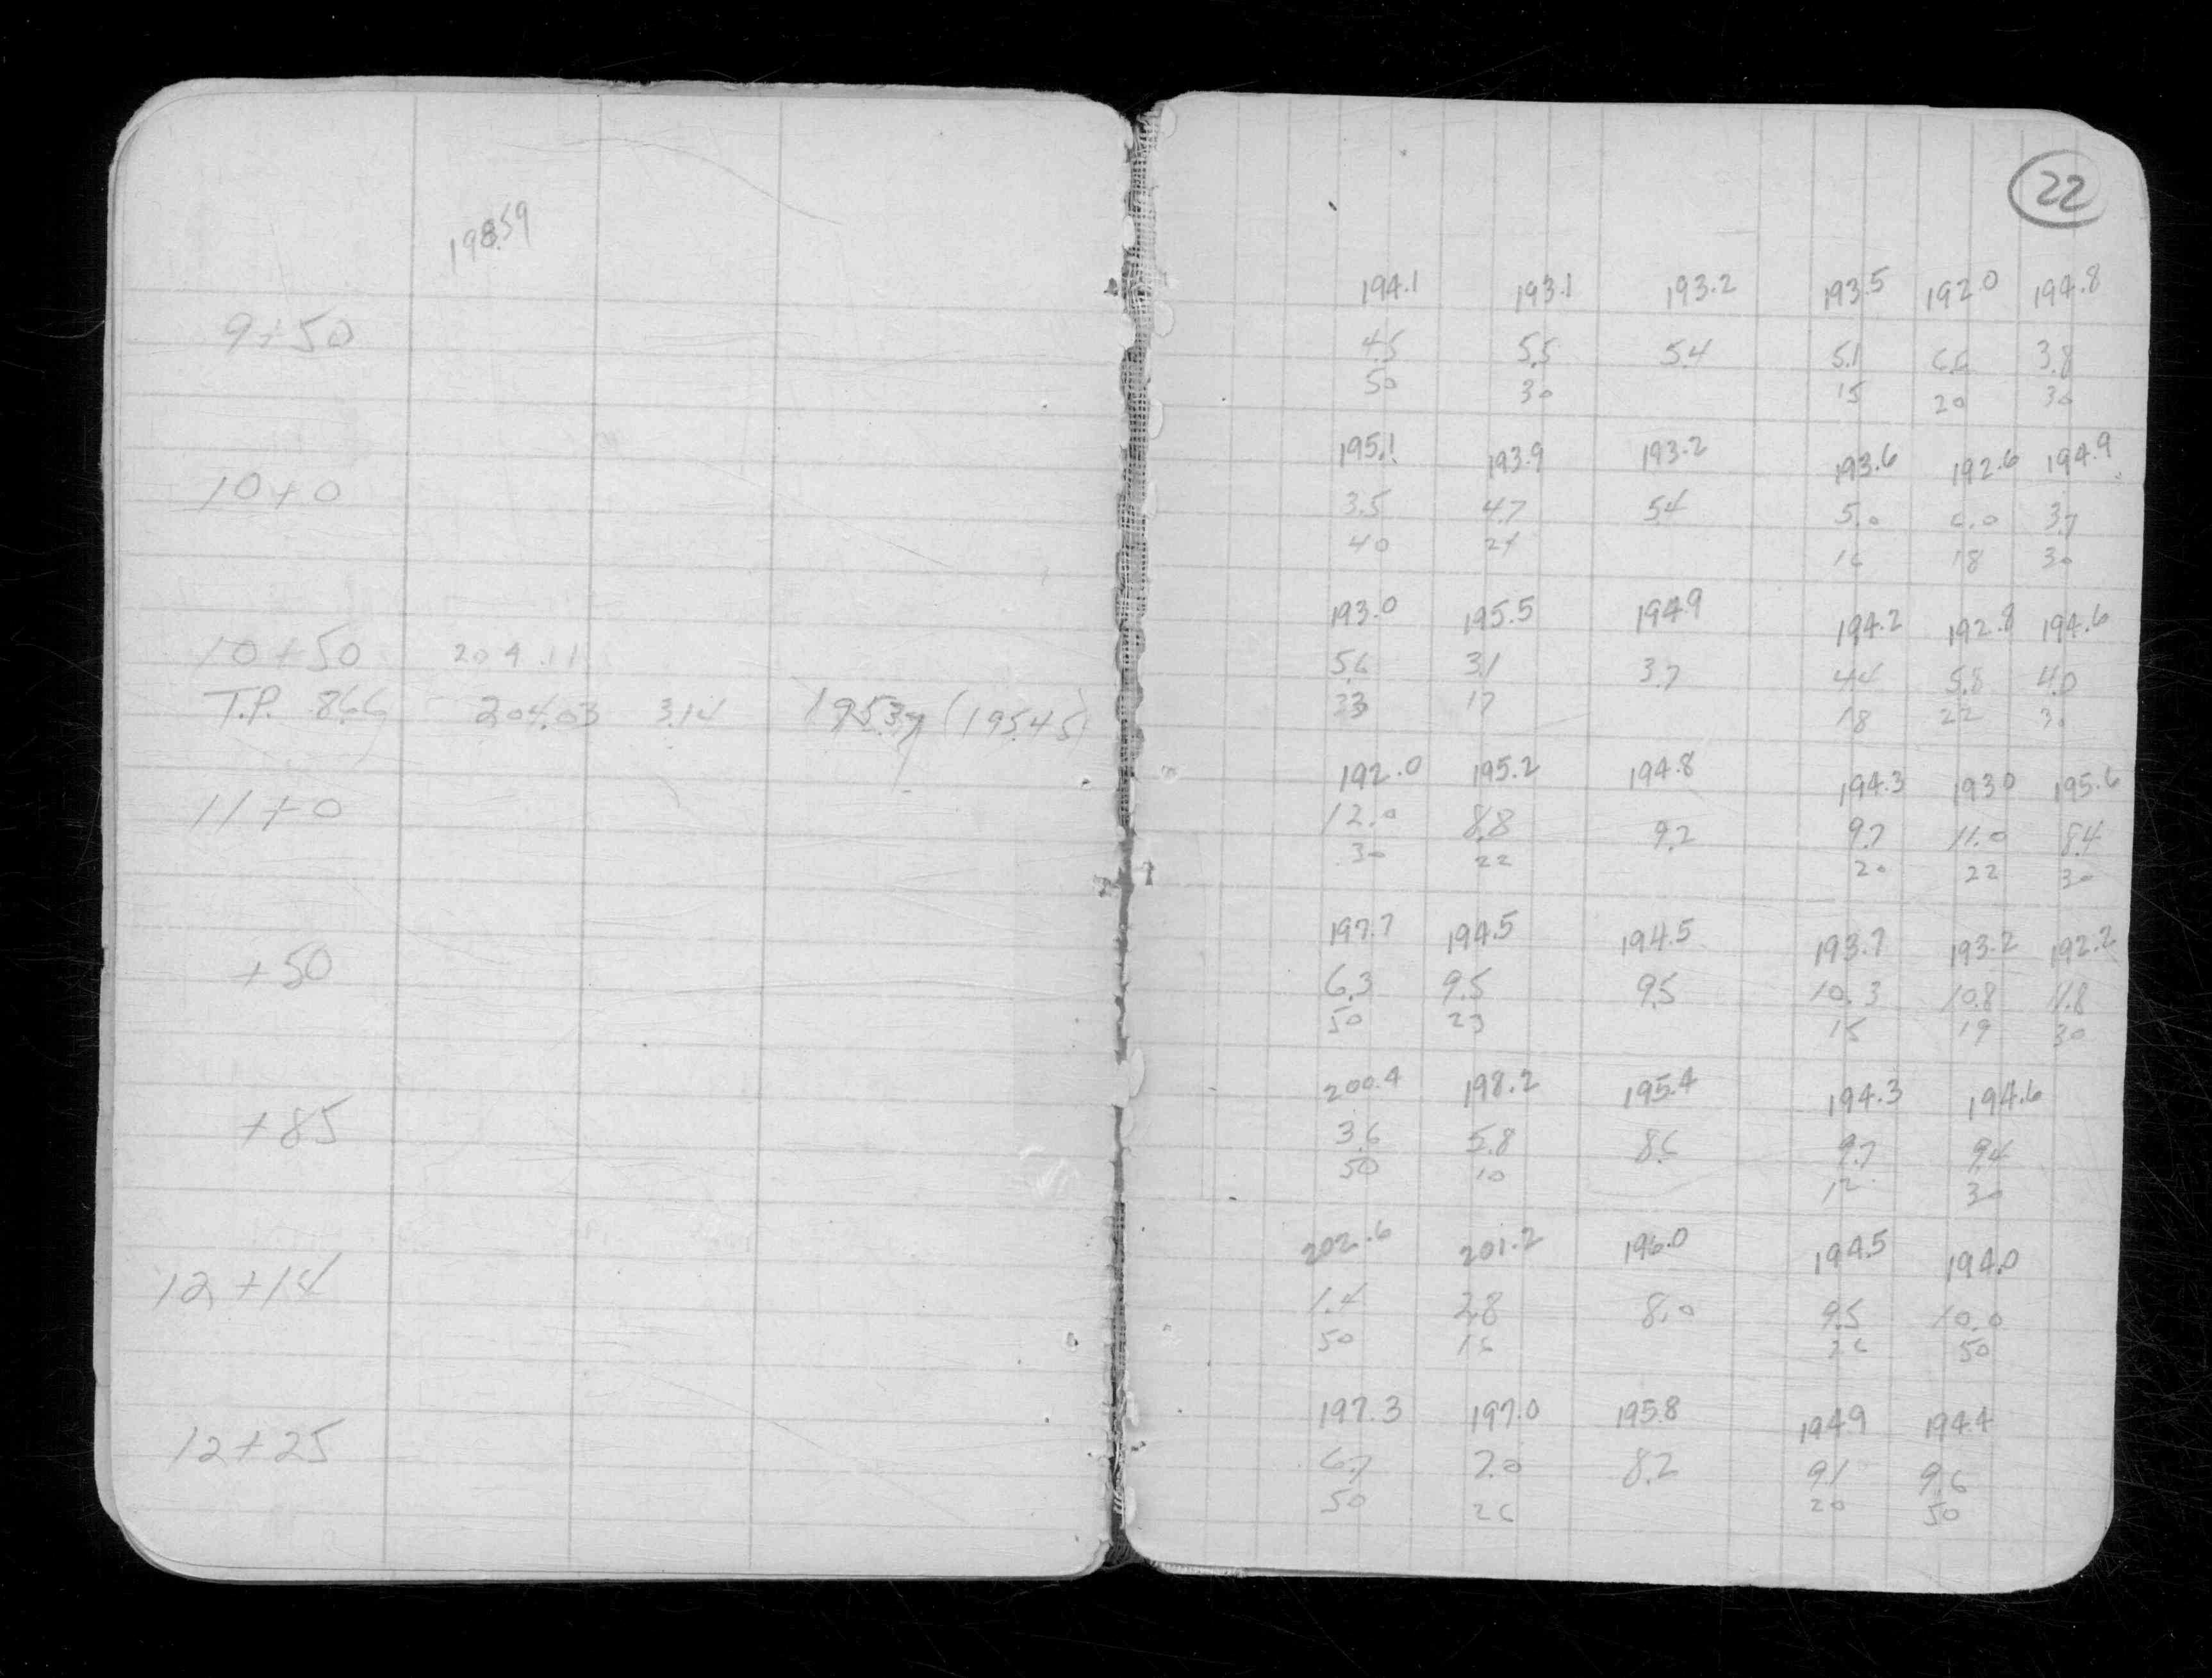 22
198.59
194.1 193.1 193.2 193.5 192.0 194.8
9+50 4.5 5.5 5.4 5.1 6.6 3.8
50 30 15 20 30
195.1 193.9 193.2 193.6 192.6 194.9
10+0 3.5 4.7 5.4 5.0 6.0 3.7
40 21 16 18 30
193.0 195.5 194.9 194.2 192.8 194.6
10+50 204.11 5.6 3.1 3.7 4.4 5.8 4.0
T.P. 8.66 204.03 3.14 195.37 (195.45) 33 17 18 22 30
192.0 195.2 194.8 194.3 193.0 195.6
11+0 12.0 8.8 9.2 9.7 11.0 8.4
30 22 20 22 30
197.7 194.5 194.5 193.7 193.2 192.2
+50 6.3 9.5 9.5 10.3 10.8 11.8
50 23 15 19 30
200.4 198.2 195.4 194.3 194.6
+85 3.6 5.8 8.6 9.7 9.4
50 10 12 30
202.6 201.2 196.0 194.5 194.0
12+14 1.4 2.8 8.0 9.5 10.0
50 16 26 50
197.3 197.0 195.8 194.9 194.4
12+25 6.7 7.0 8.2 9.1 9.6
50 26 20 50